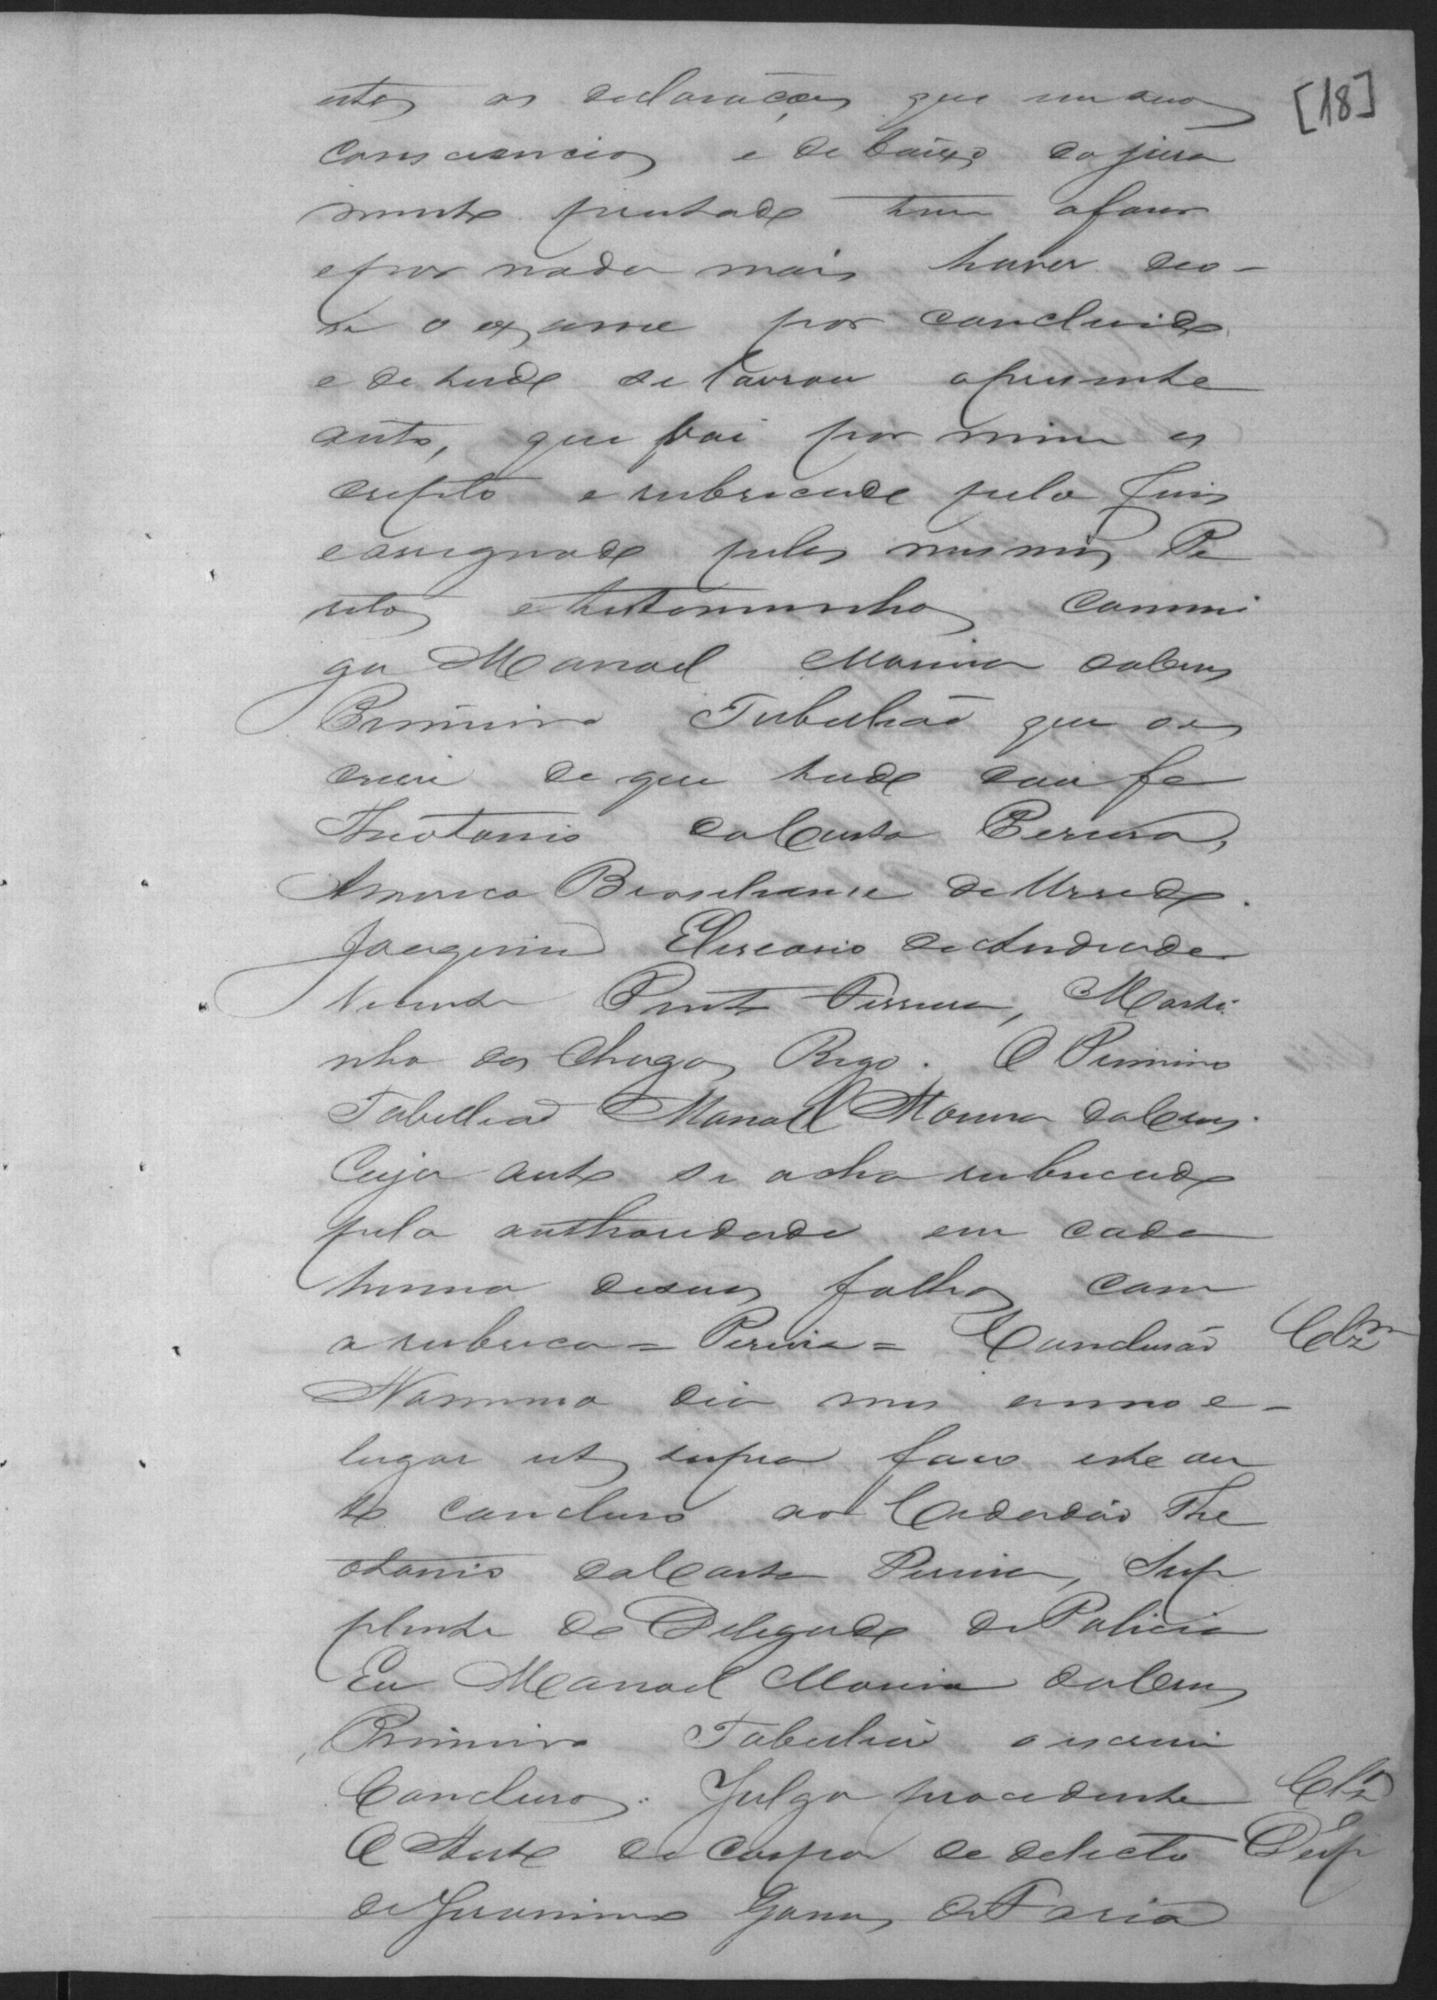 [18]
estas as declarações que em suas
consciencias e de baixo do jura
mento prestado tem afazer
epor nada mais haver deo-
se o exame por concluido
e de tudo se lavrou opresente
auto, que vai por mim es
cripto e rubricado pelo Juis
eassignado pelos mesmos Pe
ritos etestemunhas commi
go Manoel Moreira daCrus
Primeiro Tabellião que o es
crevi de que tudo dou fe
Theotonio daCosta Pereira,
Americo Brasiliense de
Joaquim Eliseario deAndrade
Vicente Pinto Ferreira, Marti
nho das Chagas Rego. O Primeiro
Tabellião Manoel Moreira daCrus.
Cujo auto se acha rubricado
pela authoridade em cada
huma desuas folhas com
a rubrica = Pereira = Conclusão Clzm
No mesmo dia mes anno e-
lugar ut supra faço este au
to concluso ao Cidadão The
otonio daCosta Pereira, Sup
plente do Delegado de Policia
Eu Manoel Moreira daCrus
Primeiro Tabellião o escrevi
Conclusos. Julgo procedente Clzm
O Auto de corpo de delicto Desp
de Jeronimo Gomes de Faria